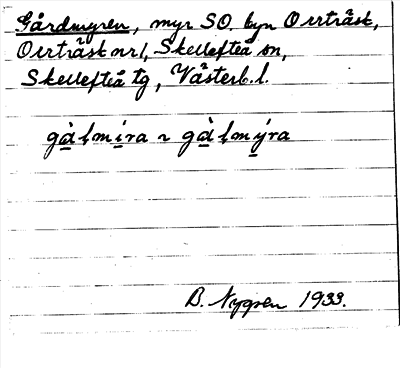 Gårdmyren, myr SO. byn Orrträsk,
Orrträsk nr 1, Skellefteå sn,
Skellefteå tg, Västerb. l.
gàlmíra ~ gàlmýra
B. Nygren 1933.